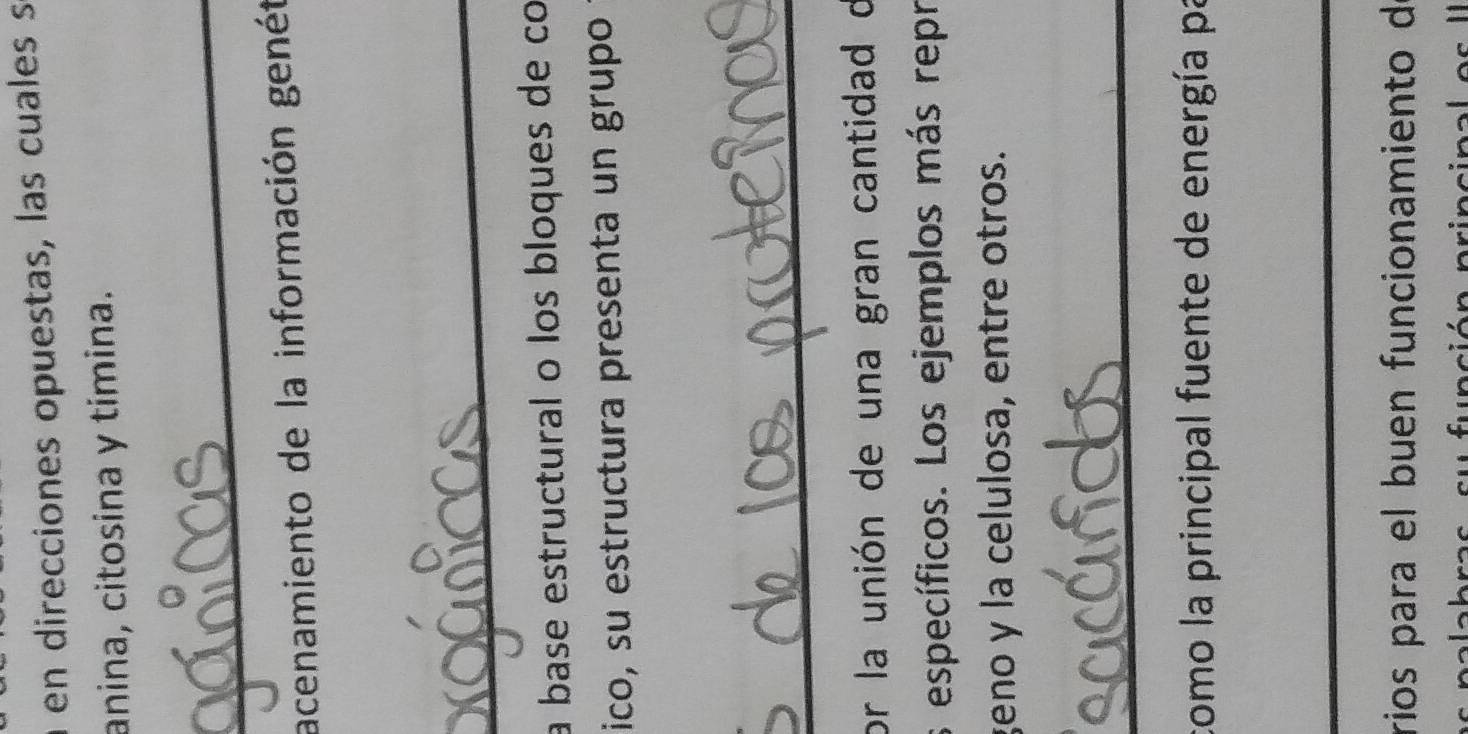 en direcciones opuestas, las cuales s
anina, citosina y timina.
agánicas
acenamiento de la información genét
a base estructural o los bloques de co
ico, su estructura presenta un grupo
de las proteínas
or la unión de una gran cantidad d
s específicos. Los ejemplos más repr
geno y la celulosa, entre otros.
sacáridos
como la principal fuente de energía pa
rios para el buen funcionamiento d
palabras, su función principal es